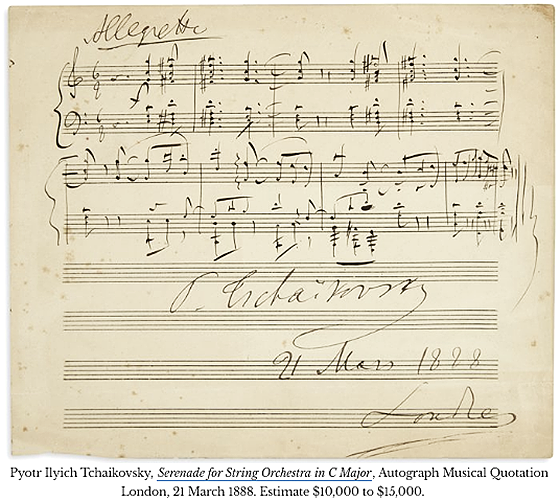 Allegretto
P. Tschaïkovsky
21 Mars 1888
Londres
Pyotr Ilyich Tchaikovsky, Serenade for String Orchestra in C Major, Autograph Musical Quotation
London, 21 March 1888. Estimate $10,000 to $15,000.